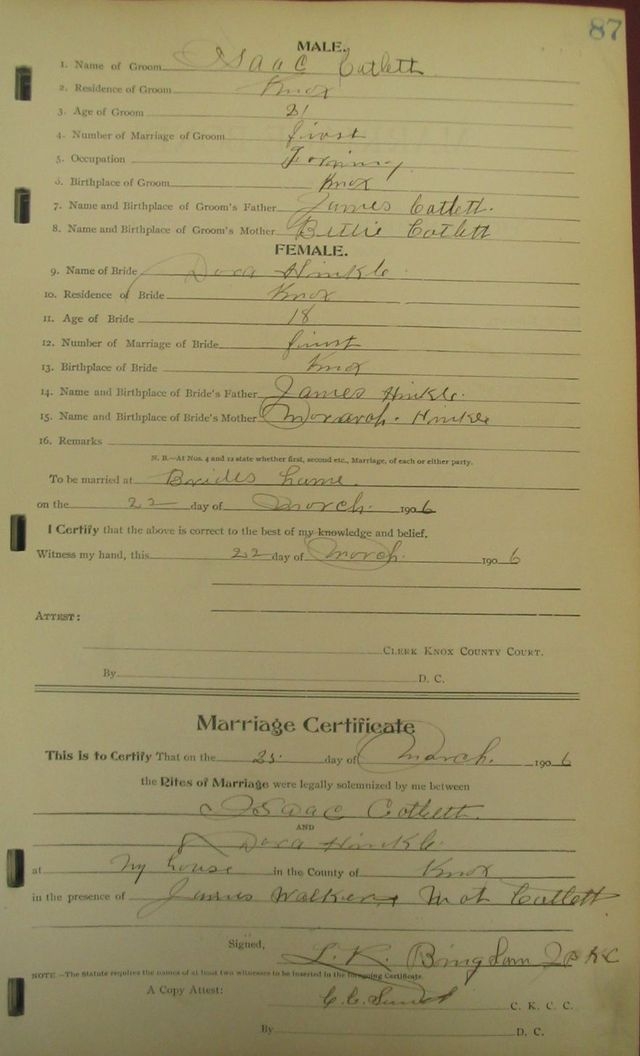 87
MALE.
1. Name of Groom Isaac Catlett
2. Residence of Groom Knox
3. Age of Groom 21
4. Number of Marriage of Groom first
5. Occupation Farming
6. Birthplace of Groom Knox
7. Name and Birthplace of Groom's Father James Catlett.
8. Name and Birthplace of Groom's Mother Bettie Catlett
FEMALE.
9. Name of Bride Dora Hinkle
10. Residence of Bride Knox
11. Age of Bride 18
12. Number of Marriage of Bride first
13. Birthplace of Bride Knox
14. Name and Birthplace of Bride's Father James Hinkle.
15. Name and Birthplace of Bride's Mother Hinkle
16. Remarks
N. B.—At Nos. 4 and 12 state whether first, second etc., Marriage, of each or either party.
To be married at Brides home.
on the 22 day of March. 1906
I Certify that the above is correct to the best of my knowledge and belief.
Witness my hand, this 22 day of March. 1906
ATTEST:
CLERK KNOX COUNTY COURT.
By D. C.
Marriage Certificate
This is to Certify That on the 25. day of March. 1906
the Rites of Marriage were legally solemnized by me between
Isaac Catlett.
AND
Dora Hinkle.
at My house in the County of Knox
in the presence of James Walker + Catlett
Signed, L. K. Bingham
NOTE—The Statute requires the names of at least two witnesses to be inserted in the foregoing Certificate.
A Copy Attest: C. C. C. K. C. C.
By D. C.